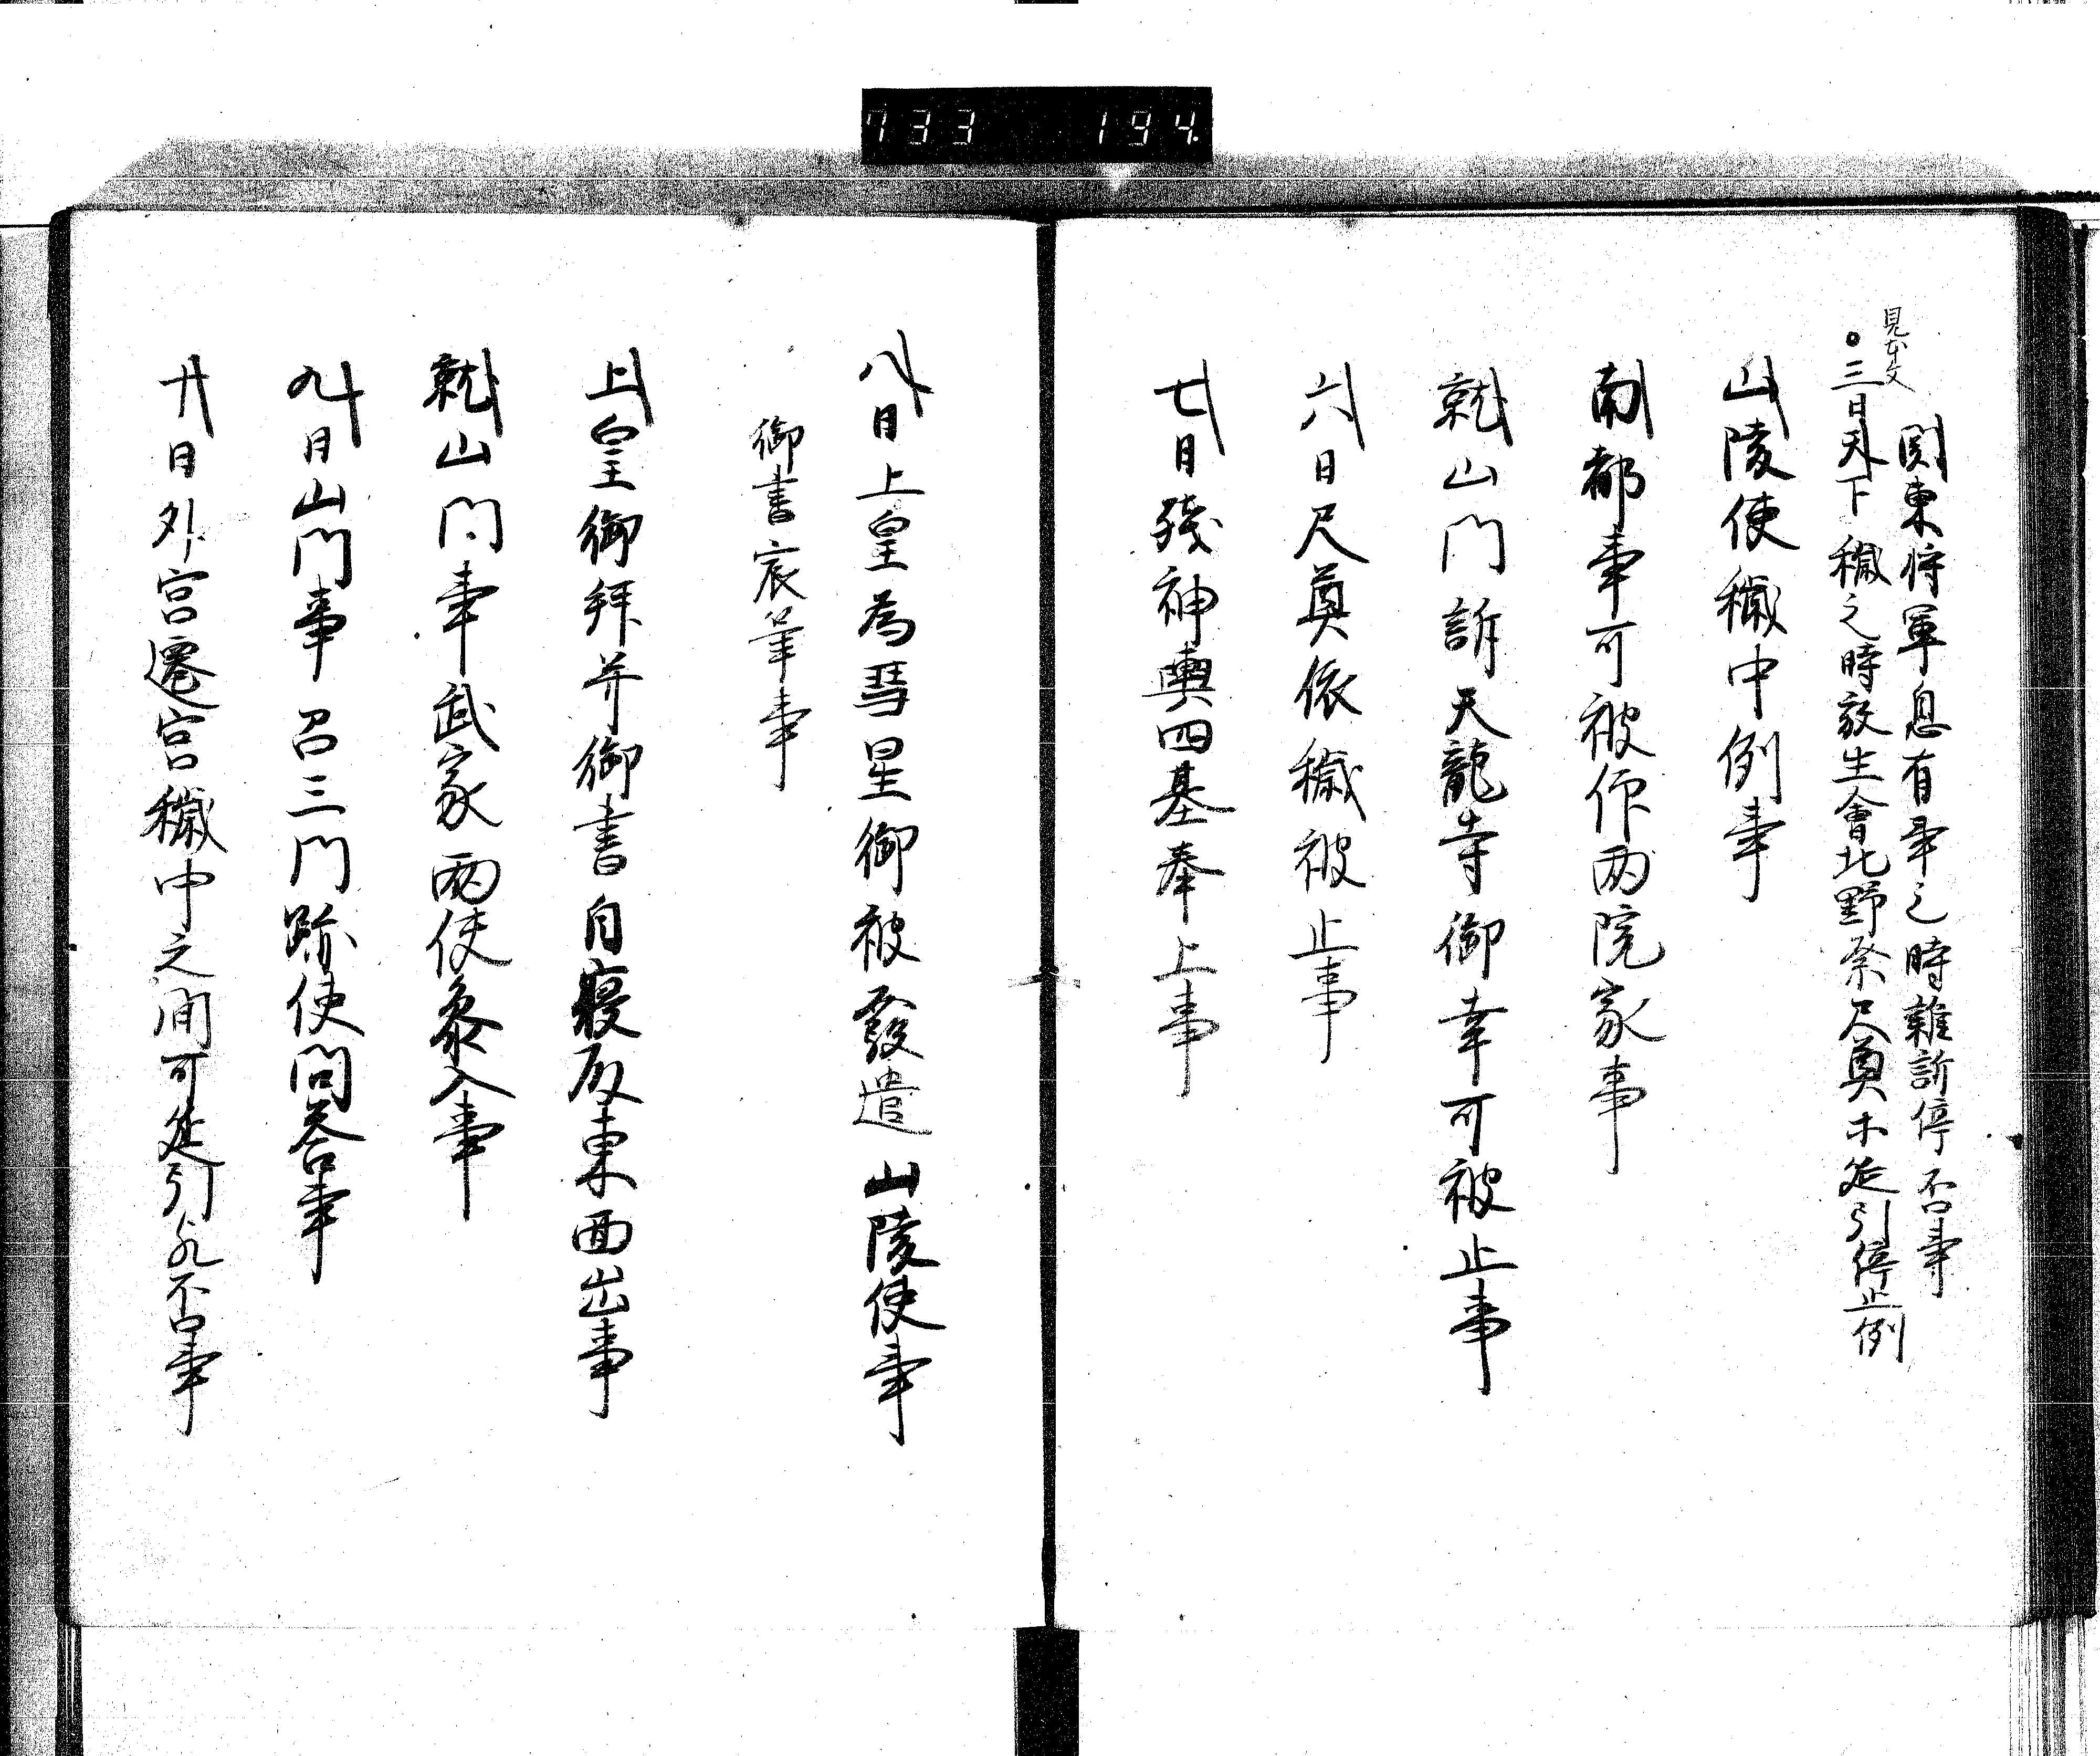 733 194.
関東将軍息有事之時雑訴停否事
見本文
三日天下穢之時放生會北野祭尺奠木延引停止例
山陵使穢中例事
南都事可被仰两院家事
就山門訴天龍寺御幸可被止事
六日尺奠依穢被止事
七日残神輿四基奉上事
八日上皇為彗星御被發遣山陵使事
御書宸筆事
上皇御拜并御書自寝殿東面出事
就山門事武家兩使參入事
九日山門事召三門跡使問答事
十日外宮遷宮穢中之間可延引哉否事